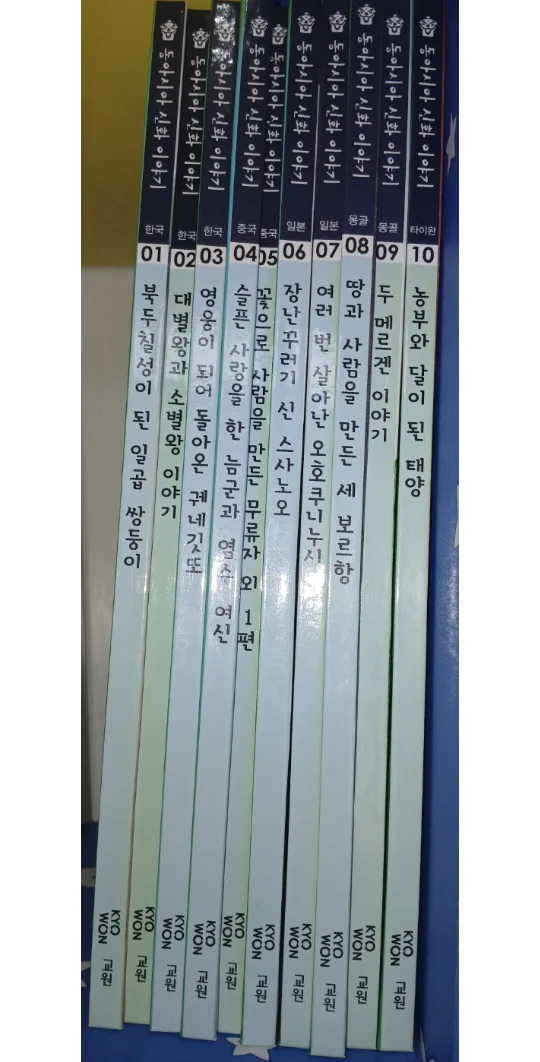 동아시아 신화 이야기
한국
01
북두칠성이 된 일곱 쌍둥이
KYO WON 교원
동아시아 신화 이야기
한국
02
대별왕과 소별왕 이야기
KYO WON 교원
동아시아 신화 이야기
한국
03
영웅이 되어 돌아온 궤네깃또
KYO WON 교원
동아시아 신화 이야기
중국
04
슬픈 사랑을 한 늠군과 염수 여신
KYO WON 교원
동아시아 신화 이야기
중국
05
꽃으로 사람을 만든 무류자 외 1편
KYO WON 교원
동아시아 신화 이야기
일본
06
장난꾸러기 신 스사노오
KYO WON 교원
동아시아 신화 이야기
일본
07
여러 번 살아난 오호쿠니누시
KYO WON 교원
동아시아 신화 이야기
몽골
08
땅과 사람을 만든 세 보르항
KYO WON 교원
동아시아 신화 이야기
몽골
09
두 메르겐 이야기
KYO WON 교원
동아시아 신화 이야기
타이완
10
농부와 달이 된 태양
KYO WON 교원